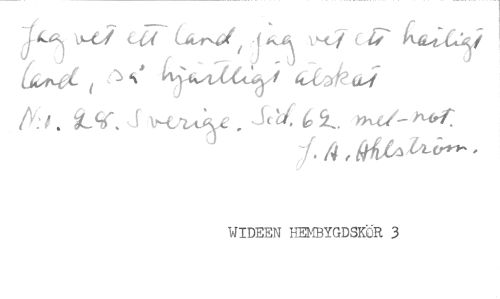 Jag vet ett land, jag vet ett härligt
land, så hjärtligt älskat
N:o. 28. Sverige. Sid. 62. mel-not.
J. A. Ahlström.
WIDEEN HEMBYGDSKÖR 3